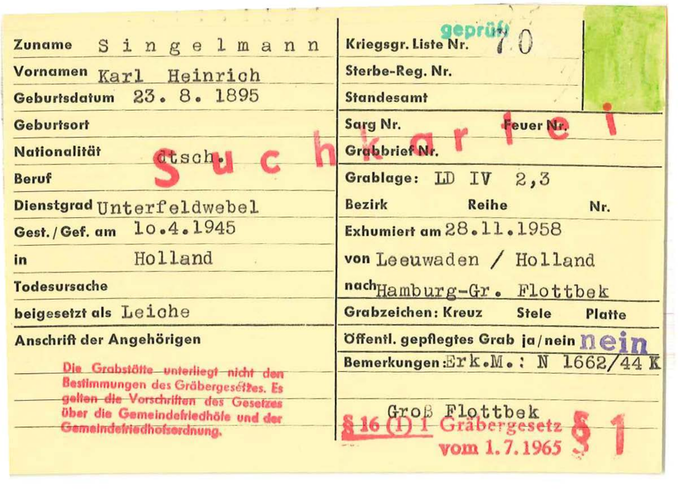 Zuname S i n g e l m a n n
Vornamen Karl Heinrich
Geburtsdatum 23. 8. 1895
Geburtsort
Nationalität dtsch.
Beruf
Dienstgrad Unterfeldwebel
Gest./Gef. am 1o.4.1945
in Holland
Todesursache
beigesetzt als Leiche
Anschrift der Angehörigen
Die Grabstätte unterliegt nicht den
Bestimmungen des Gräbergesetzes. Es
gelten die Vorschriften des Gesetzes
über die Gemeindefriedhöfe und der
Gemeindefriedhofsordnung.
Suchkartei
geprüft
Kriegsgr. Liste Nr. 70
Sterbe-Reg. Nr.
Standesamt
Sarg Nr. Feuer Nr.
Grabbrief Nr.
Grablage: LD IV 2,3
Bezirk Reihe Nr.
Exhumiert am 28.11.1958
von Leeuwaden / Holland
nach Hamburg-Gr. Flottbek
Grabzeichen: Kreuz Stele Platte
Öffentl. gepflegtes Grab ja/nein nein
Bemerkungen: Erk.M.: N 1662/44 K
Groß Flottbek
§ 16 (1) 1 Gräbergesetz
vom 1.7.1965
§ 1